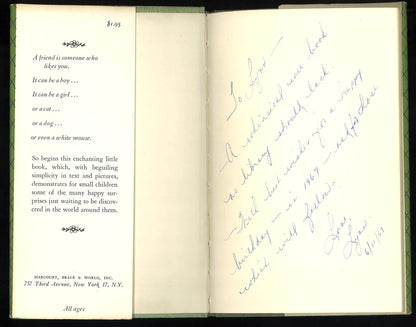 $1.95
A friend is someone who
likes you.
It can be a boy . . .
It can be a girl . . .
or a cat . . .
or a dog . . .
or even a white mouse.
So begins this enchanting little
book, which, with beguiling
simplicity in text and pictures,
demonstrates for small children
some of the many happy sur-
prises just waiting to be discov-
ered in the world around them.
HARCOURT, BRACE & WORLD, INC.
757 Third Avenue, New York 17, N.Y.
All ages
To Lynn -
A whimsical wee book
no library should lack.
and best wishes for a happy
birthday - in 1967 - and for those
which will follow.
Love,